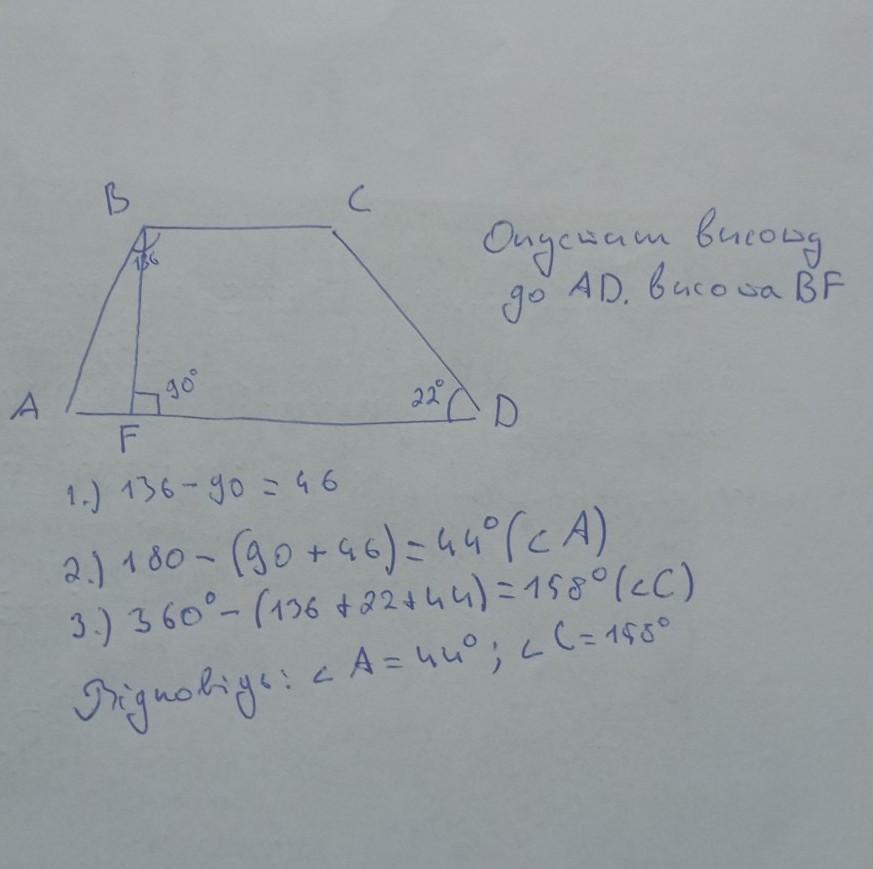 B
C
136
Опустим висоту
до AD. висота BF
A
90°
22°
D
F
1.) 136-90=46
2.) 180-(90+46)=44°(∠A)
3.) 360°-(136+22+44)=158°(∠C)
Відповідь: ∠A=44°; ∠C=158°